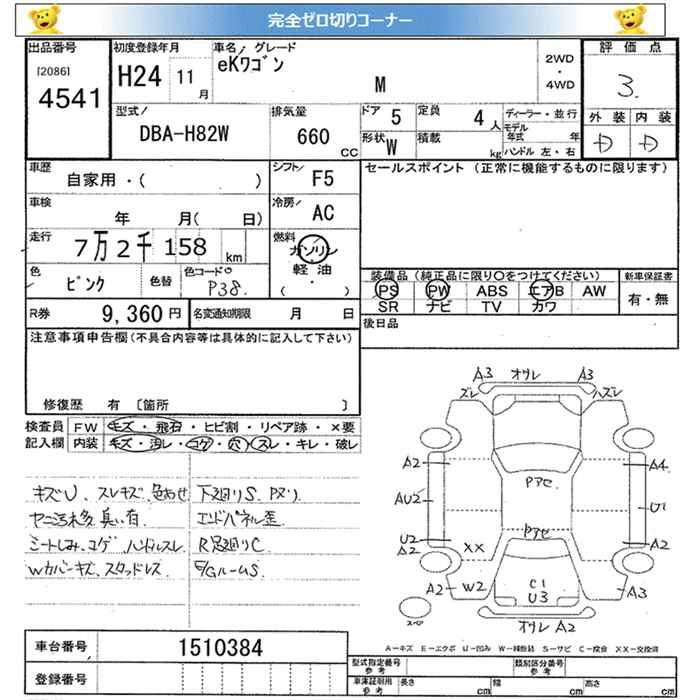 完全ゼロ切りコーナー
出品番号
[2086]
4541
初度登録年月
H24 11 月
車名/ グレード
eKワゴン
M
2WD
・
4WD
評価点
3.
外装 内装
D D
型式/
DBA-H82W
排気量
660 CC
ドア 5
定員 4 人
形状 W
積載 kg
ディーラー・並行
モデル年式 年
ハンドル 左・右
車歴
自家用・( )
シフト/
F5
セールスポイント (正常に機能するものに限ります)
車検
年 月( 日)
冷房/
AC
走行
7万2千158 km
燃料
ガソリン
・
軽油
( ・ )
色
ピンク
色替
色コード
P38.
装備品 (純正品に限り○をつけてください)
PS PW ABS エアB AW
SR ナビ TV カワ
新車保証書
有・無
R券 9,360 円
名変通知期限 月 日
後日品
注意事項申告欄 (不具合内容等は具体的に記入して下さい)
修復歴 有 [箇所 ]
検査員記入欄
FW キズ・飛石・ヒビ割・リペア跡・×要
内装 キズ・汚レ・コゲ・穴・スレ・キレ・破レ
キズU、スレキズ、色あせ
ヤニ汚れ多 臭い有
シートしみ、コゲ ハンドルスレ
Wカバーキズ、スタッドレス
下廻りS、Pヌリ
エンドパネル歪
R足廻りC
E/GルームS
A3 オサレ A3
ズレ ハズレ
A2 A4
Pアセ
AU2 U1
Pアセ
U2
A2 A2
XX
A2 W2 C1
U3 A3
オサレ A2
スペア
A－キズ E－エクボ U－凹み W－補修跡 S－サビ C－腐食 XX－交換済
車台番号 1510384
登録番号
型式指定番号 参考
類別区分番号 参考
車庫証明用 参考
長さ cm
幅 cm
高さ cm